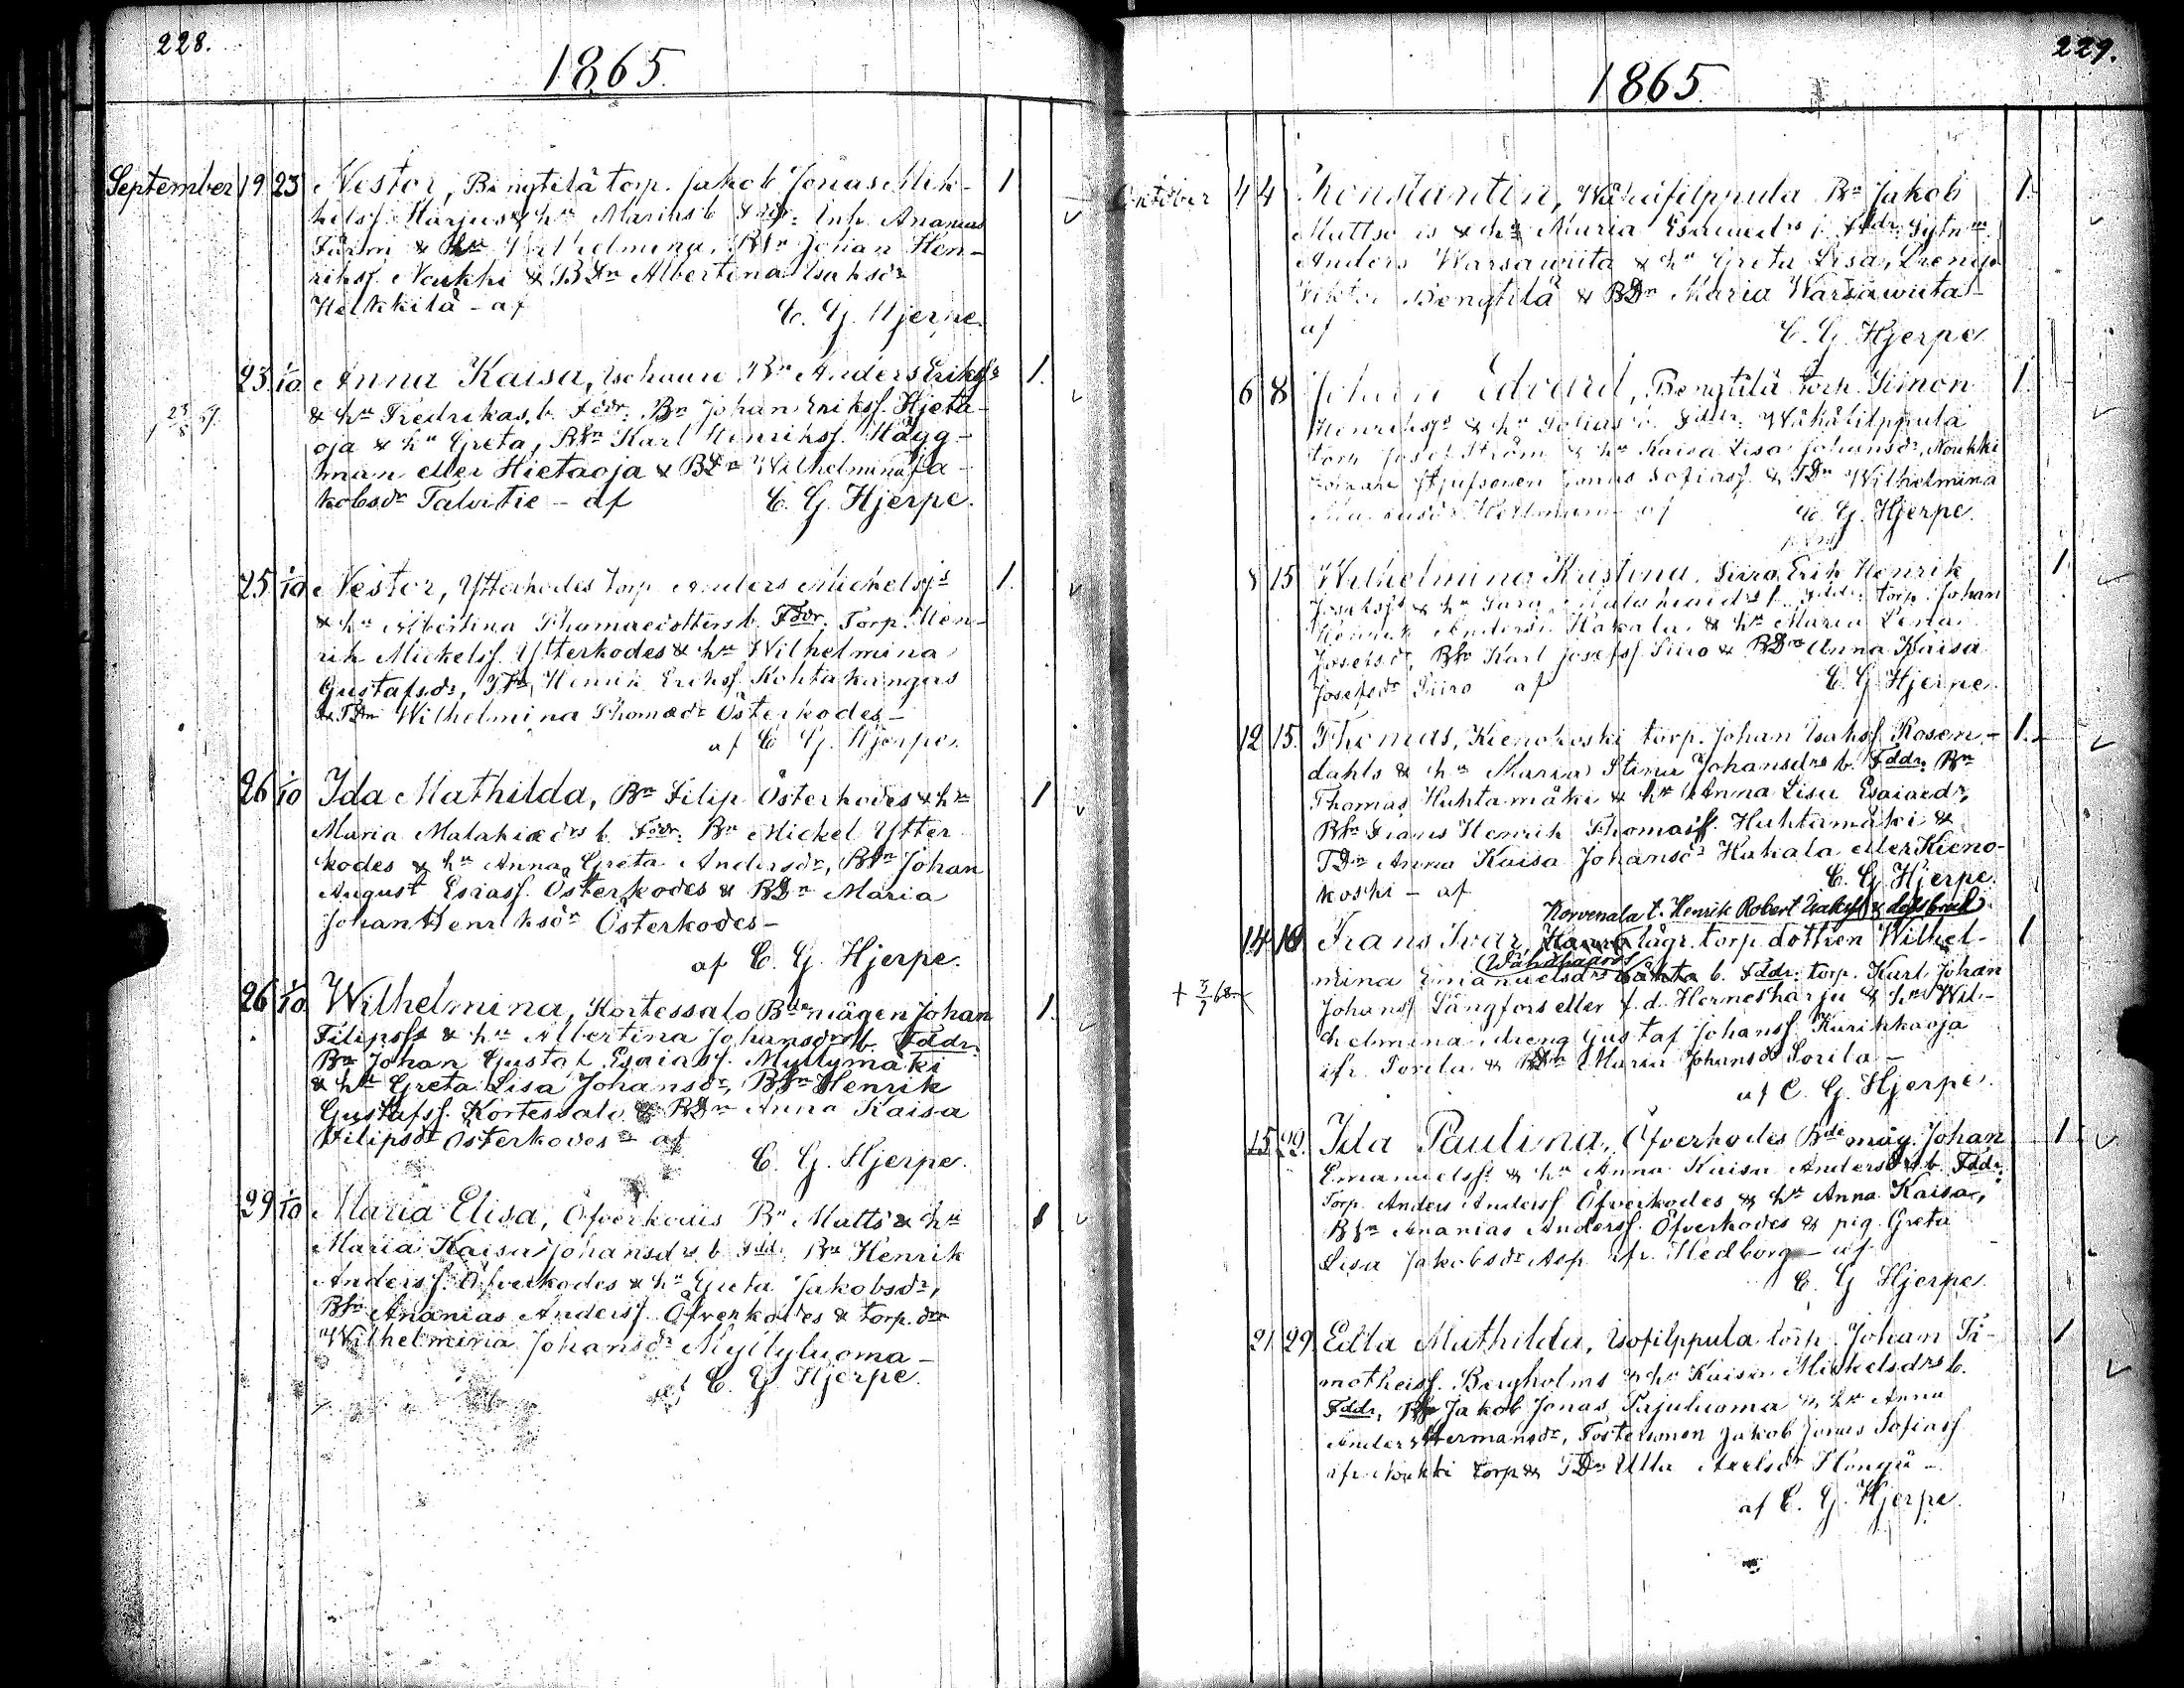 228.
1865.
September 19 23 Nestor, Bengtilä torp. Jakob Jonas Mik-
helsf. Harjus & hu Marias b. Fddr: Inh. Ananias
& hu Wilhelmina, Bsn Johan Hen-
riksf. Noukki & BDn Albertina Isaksdr
Heikkilä - af C. G. Hjerpe.
23 1/10 Anna Kaisa, Bn Anders Eriksfs 1.
& hu Fredrikas b. Fddr: Bn Johan Eriksf. Hjeta-
oja & hu Greta, Bsn Karl Henriksf. Hägg-
man eller Hietaoja & BDn Wilhelmina Ja-
kobsdr Talvitie - af C. G. Hjerpe.
25 1/10 Nestor, Ytterkodes torp. Anders Mickelsfs 1.
& hu Albertina Thomaedotters b. Fddr. Torp. Hen-
rik Mickelsf. Ytterkodes & hu Wilhelmina
Gustafsdr, TSn Henrik Eriksf. Kohtakangas
& TDn Wilhelmina Thomædr Österkodes -
af C. G. Hjerpe.
26 1/10 Ida Mathilda, Bn Filip Österkodes & hu 1
Maria Malakiædrs b. Fddr. Bn Mickel Ytter
kodes & hu Anna Greta Andersdr, BSn Johan
August Esiasf. Österkodes & BDn Maria
Johan Henriksdr Österkodes -
af C. G. Hjerpe.
26 1/10 Wilhelmina, Kortessalo Bde mågen Johan 1.
Filipsfs & hu Albertina Johansdrs b. Fddr.
Bn Johan Gustaf Esaiasf. Myllymäki
& hu Greta Lisa Johansdr, BSn Henrik
Gustafsf. Kortesalo & BDn Anna Kaisa
Filipsdr Österkodes - af
C. G. Hjerpe.
29 1/10 Maria Elisa, Öfverkodes Bn Matts & hu 1
Maria Kaisa Johansdrs b. Fdd. Bn Henrik
Andersf. Öfverkodes & hu Greta Jakobsdr,
BSn Ananias Andersf. Öfverkodes & torp. dr
Wilhelmina Johansdr Myllyluoma -
af C. G. Hjerpe.
229.
1865.
October 4 4 Konstantin, Wähäfilppula Bn Jakob 1.
Mattsf s & hu Maria b. Fddr:
Anders Warsawiita & hu Greta Lisa, Dreng
Viktor Bengtilä & BDn Maria Warsawiita -
af C. G. Hjerpe
6 8 Johan Edvard, Bengtilä torp. Simon 1.
Henriksfs & hu Sofias b. Fddr: Wähäfilppula
torp. Josef Ström & hu Kaisa Lisa Johansdr, Noukki
styfsonen Jonas Sofiasf. & TDn Wilhelmina
af C. G. Hjerpe.
8 15 Wilhelmina Kristina, Siiro Erik Henrik 1.
& hu Sara b. Fddr. torp. Johan
Henrik Andersf. Hakala & hu Maria Lena
Josefsdr, BSn Karl Josefsf. Siiro & BDn Anna Kaisa
Josefsdr Siiro af C. G. Hjerpe.
12 15. Thomas, Kienokoski torp. Johan Isaksf. Rosen- 1.
dahls & hu Maria Stina Johansdrs b. Fddr. Bn
Thomas Huhtamäki & hu Anna Lisa Esaiædr,
BSn Frans Henrik Thomasf. Huhtamäki &
TDn Anna Kaisa Johansdr Hakala eller Kieno-
koski - af C. G. Hjerpe.
Korvenala t. Henrik Robert Isaksf
14 18 Frans Ivar, lägr. torp. dottren Wilhel- 1
mina Emanuelsdrs b. Fddr. torp. Karl Johan
+ 3/7 68. Johansf. Långfors eller f. d. Harneshärju & hu Wil-
helmina, dreng Gustaf Johansf. Kurikkaoja
ifr. Sorila & BDn Maria Johansdr Sorila -
af C. G. Hjerpe.
15 22. Ida Paulina, Öfverkodes Bde måg. Johan 1
Emanuelsfs & hu Anna Kaisa Andersdrs b. Fddr.
Torp. Anders Andersf. Öfverkodes & hu Anna Kaisa,
BSn Ananias Andersf. Öfverkodes & pig. Greta
Lisa Jakobsdr Asp ifr. Hedborg - af
C. G. Hjerpe.
21 29 Edla Mathilda, Isofilppula torp. Johan Ti- 1
motheisf. Bergholms & hu Kaisa Mickelsdrs b.
Fddr, Bn Jakob Jonas Pajuluoma & hu Anna
Hermansdr, Fostersonen Jakob Jonas Sofiasf.
ifr. Noukki torp & TDn Ulla Axelsdr
af C. G. Hjerpe.